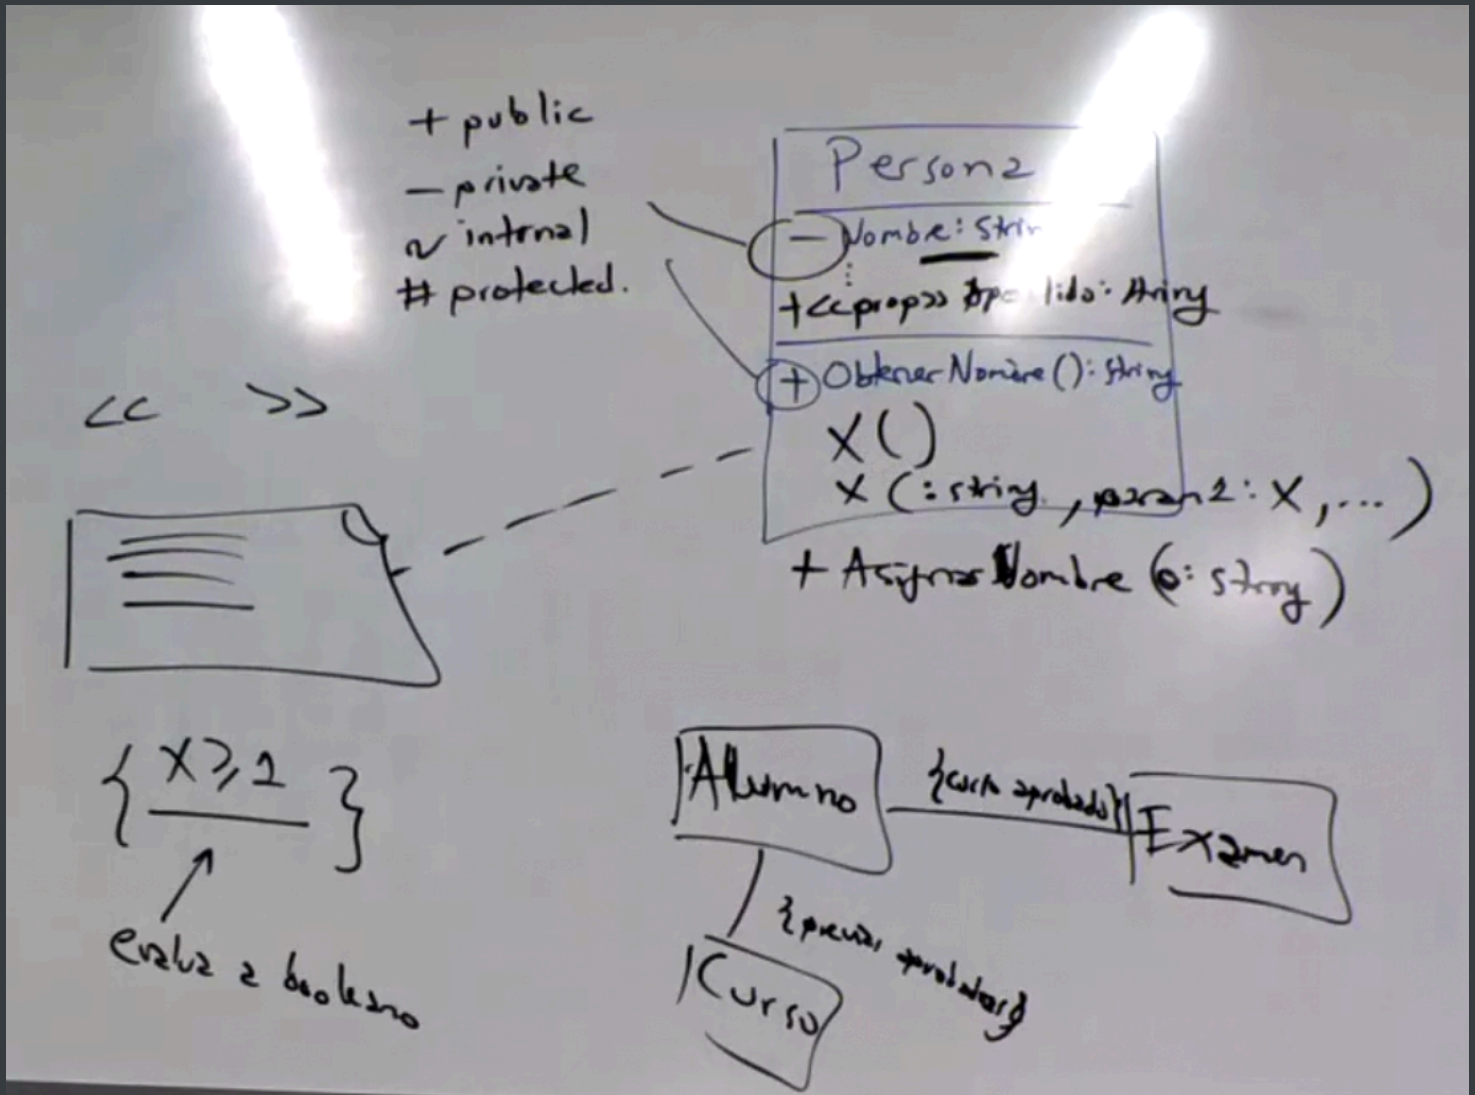 + public
- private
~ internal
# protected.
Persona
- Nombre: Strin
+<<prop>> Apellido: string
+ ObtenerNombre(): string
X()
X (:string, param2: X, ...)
+ AsignarNombre (e: string)
<< >>
{ X≥1 }
evalua a booleano
Alumno
{curso aprobado}
Examen
{previas aprobadas}
Curso